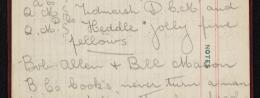 Q. M. S. Tidmarsh D. C. M. and
Q. M. S. Heddle "jolly fine
fellows
Bob Allen & Bill Mason
B Co cooks, never turn a man
NOTES